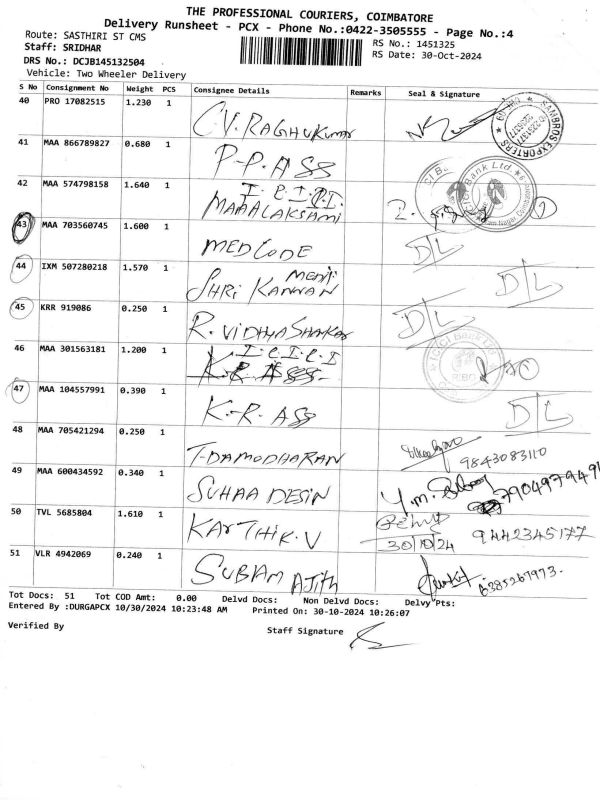 THE PROFESSIONAL COURIERS, COIMBATORE
Delivery Runsheet - PCX - Phone No.:0422-3505555 - Page No.:4
Route: SASTHIRI ST CMS
RS No.: 1451325
Staff: SRIDHAR
RS Date: 30-Oct-2024
DRS No.: DCJB145132504
Vehicle: Two Wheeler Delivery
S No Consignment No Weight PCS Consignee Details Remarks Seal & Signature
40 PRO 17082515 1.230 1 C.V. RAGHUKUMAR
SAMBROS EXPORTERS
41 MAA 866789827 0.680 1 P-P. ASS
42 MAA 574798158 1.640 1 I. C. I. C. I
MAHALAKSHMI
ICICI Bank Ltd.
43 MAA 703560745 1.600 1 MEDCODE D/L
44 IXM 507280218 1.570 1 SHRI KANNAN D/L
45 KRR 919086 0.250 1 R. VIDHYA SHAKAR D/L
46 MAA 301563181 1.200 1 I. C. I. C. I
K. R. ASS
ICICI Bank Ltd
47 MAA 104557991 0.390 1 K. R. ASS D/L
48 MAA 705421294 0.250 1 T-DAMODHARAN 9843083110
49 MAA 600434592 0.340 1 SUHAA DESIN
50 TVL 5685804 1.610 1 KARTHIK. V 30/10/24 9442345177
51 VLR 4942069 0.240 1 SUBAM AJITH 6385267973.
Tot Docs: 51 Tot COD Amt: 0.00 Delvd Docs: Non Delvd Docs: Delvy Pts:
Entered By :DURGAPCX 10/30/2024 10:23:48 AM Printed On: 30-10-2024 10:26:07
Verified By Staff Signature